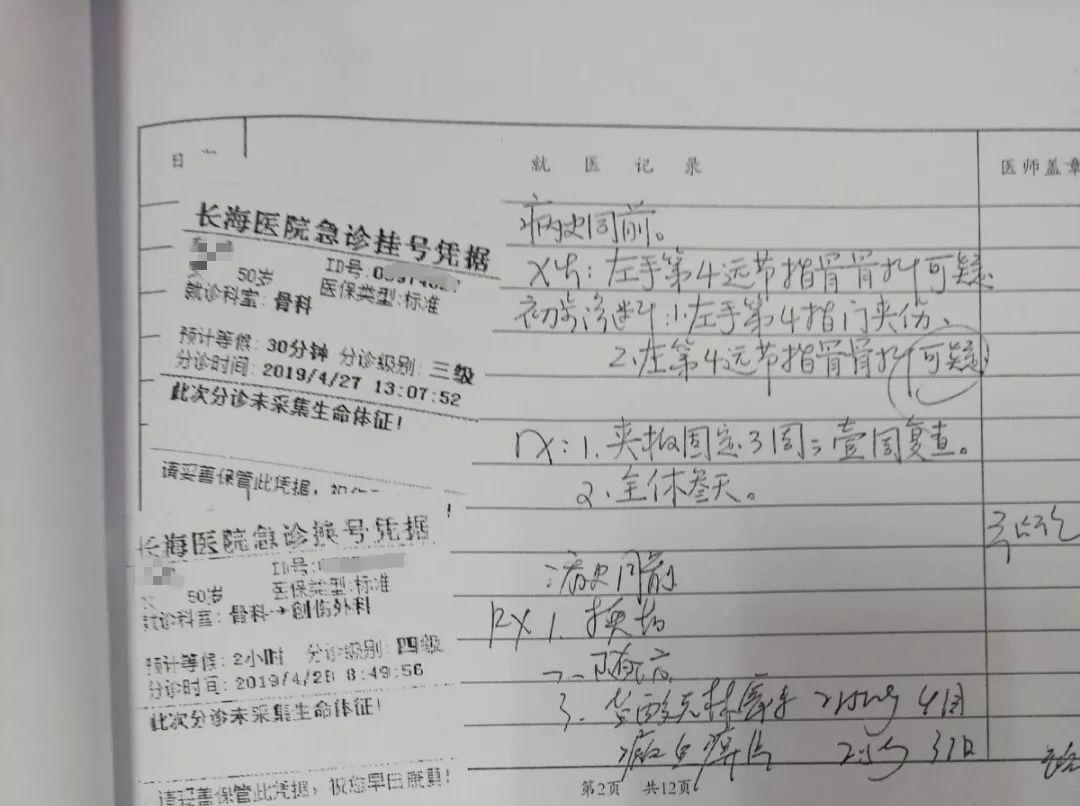 日
就医记录
医师盖章
长海医院急诊挂号凭据
ID号:
50岁
医保类型:标准
就诊科室: 骨科
预计等候: 30分钟 分诊级别: 三级
分诊时间: 2019/4/27 13:07:52
此次分诊未采集生命体征!
请妥善保管此凭据,
病史同前。
X片: 左手第4远节指骨骨折可疑
初步诊断: 1.左手第4指门夹伤、
2.左第4远节指骨骨折可疑
rx: 1.夹板固定3周; 壹周复查。
2.全休叁天。
长海医院急诊挂号凭据
ID号:
50岁
医保类型:标准
就诊科室: 骨科→创伤外科
预计等候: 2小时 分诊级别: 四级
分诊时间: 2019/4/28 8:49:56
此次分诊未采集生命体征!
请妥善保管此凭据, 祝您早日康复!
: 病史同前
RX 1. 换药
3.
第2页 共12页